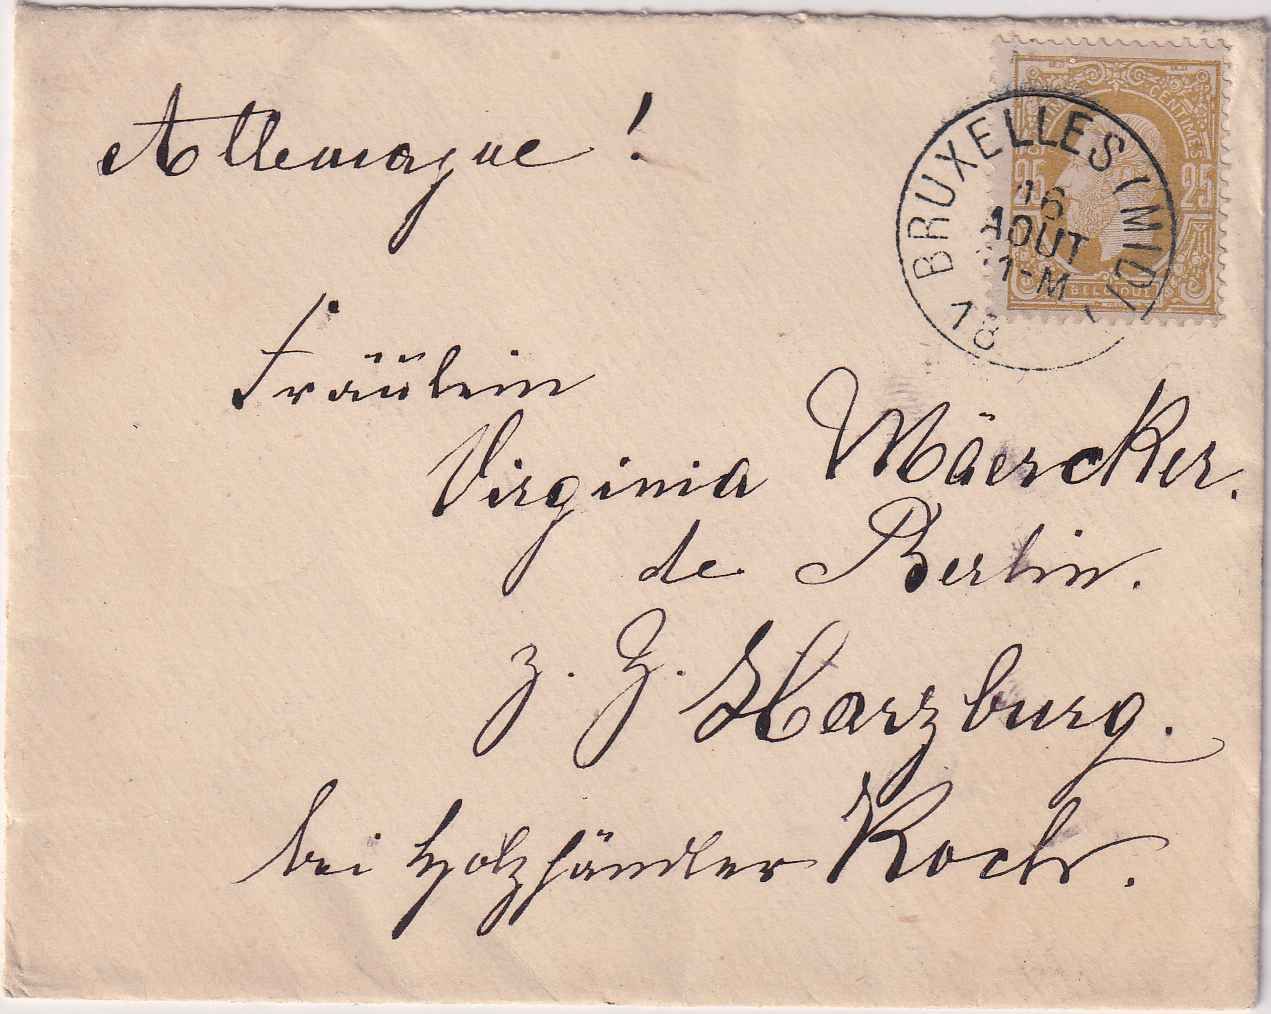 Allemagne !
BRUXELLES (MIDI)
16
AOUT
1-M
18
CENTIMES
25 25
BELGIQUE
Fräulein
Virginia Mäercker.
de Berlin.
z. Z. Harzburg.
bei Holzhändler Koch.